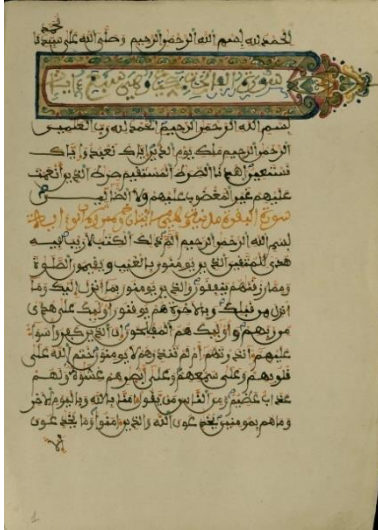 الحمد لله بسم الله الرحمن الرحيم وصلى الله على سيدنا محمد
سورة الفاتحة وهي سبع ءايات
بسم الله الرحمن الرحيم الحمد لله رب العلمين
الرحمن الرحيم ملك يوم الدين إياك نعبد وإياك
نستعين اهدنا الصرط المستقيم صرط الذين أنعمت
عليهم غير المغضوب عليهم ولا الضالين
سورة البقرة مدنية وهي مائتان
بسم الله الرحمن الرحيم الم ذلك الكتب لا ريب فيه
هدى للمتقين الذين يومنون بالغيب ويقيمون الصلوة
ومما رزقنهم ينفقون والذين يومنون بما أنزل إليك وما
أنزل من قبلك وبالاخرة هم يوقنون أوليك على هدى
من ربهم وأوليك هم المفلحون إن الذين كفروا سواء
عليهم ءانذرتهم أم لم تنذرهم لا يومنون ختم الله على
قلوبهم وعلى سمعهم وعلى أبصرهم غشوة ولهم
عذاب عظيم ومن الناس من يقول ءامنا بالله وباليوم الاخر
وما هم بمومنين يخدعون الله والذين ءامنوا وما يخدعون
إلا
1